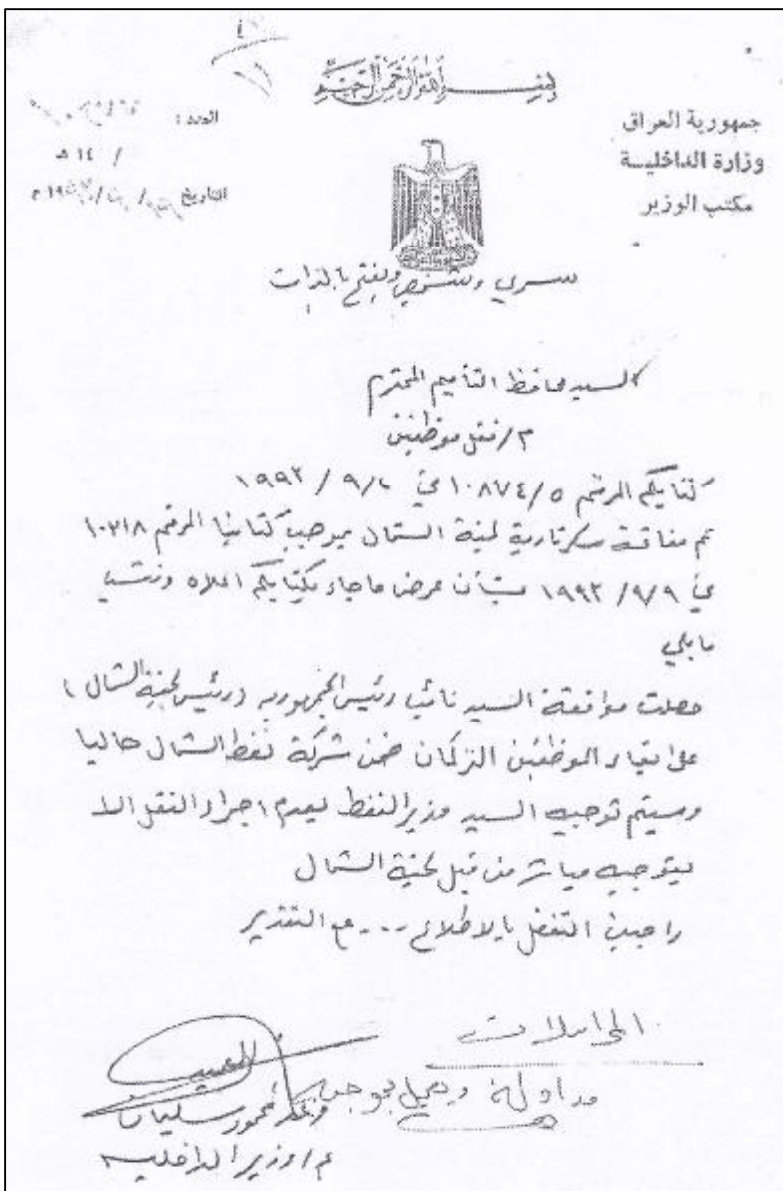 بسم الله الرحمن الرحيم
جمهورية العراق
وزارة الداخليـــة
مكتب الوزير
العدد :
/ ١٤ هـ
التاريخ
سري وشخصي ويفتح بالذات
السيد محافظ التأميم المحترم
م/ نقل موظفين
كتابكم المرقم ١٠٨٧٤/٥ في ٩/٢ / ١٩٩٢
تم مفاتحة سكرتارية لجنة الشمال بموجب كتابنا المرقم ١٠٢١٨
في ٩/٩/ ١٩٩٢ بشأن عرض ماجاء بكتابكم اعلاه وننسب
مايلي
حصلت موافقة السيد نائب رئيس الجمهورية (رئيس لجنة الشمال)
على بقاء الموظفين التركمان ضمن شركة نفط الشمال حاليا
وسيتم توجيه السيد وزير النفط بعدم اجراء النقل الا
بتوجيه مباشر من قبل لجنة الشمال
راجين التفضل بالاطلاع ... مع التقدير
العميد
محمود سليمان
م/ وزير الداخليه